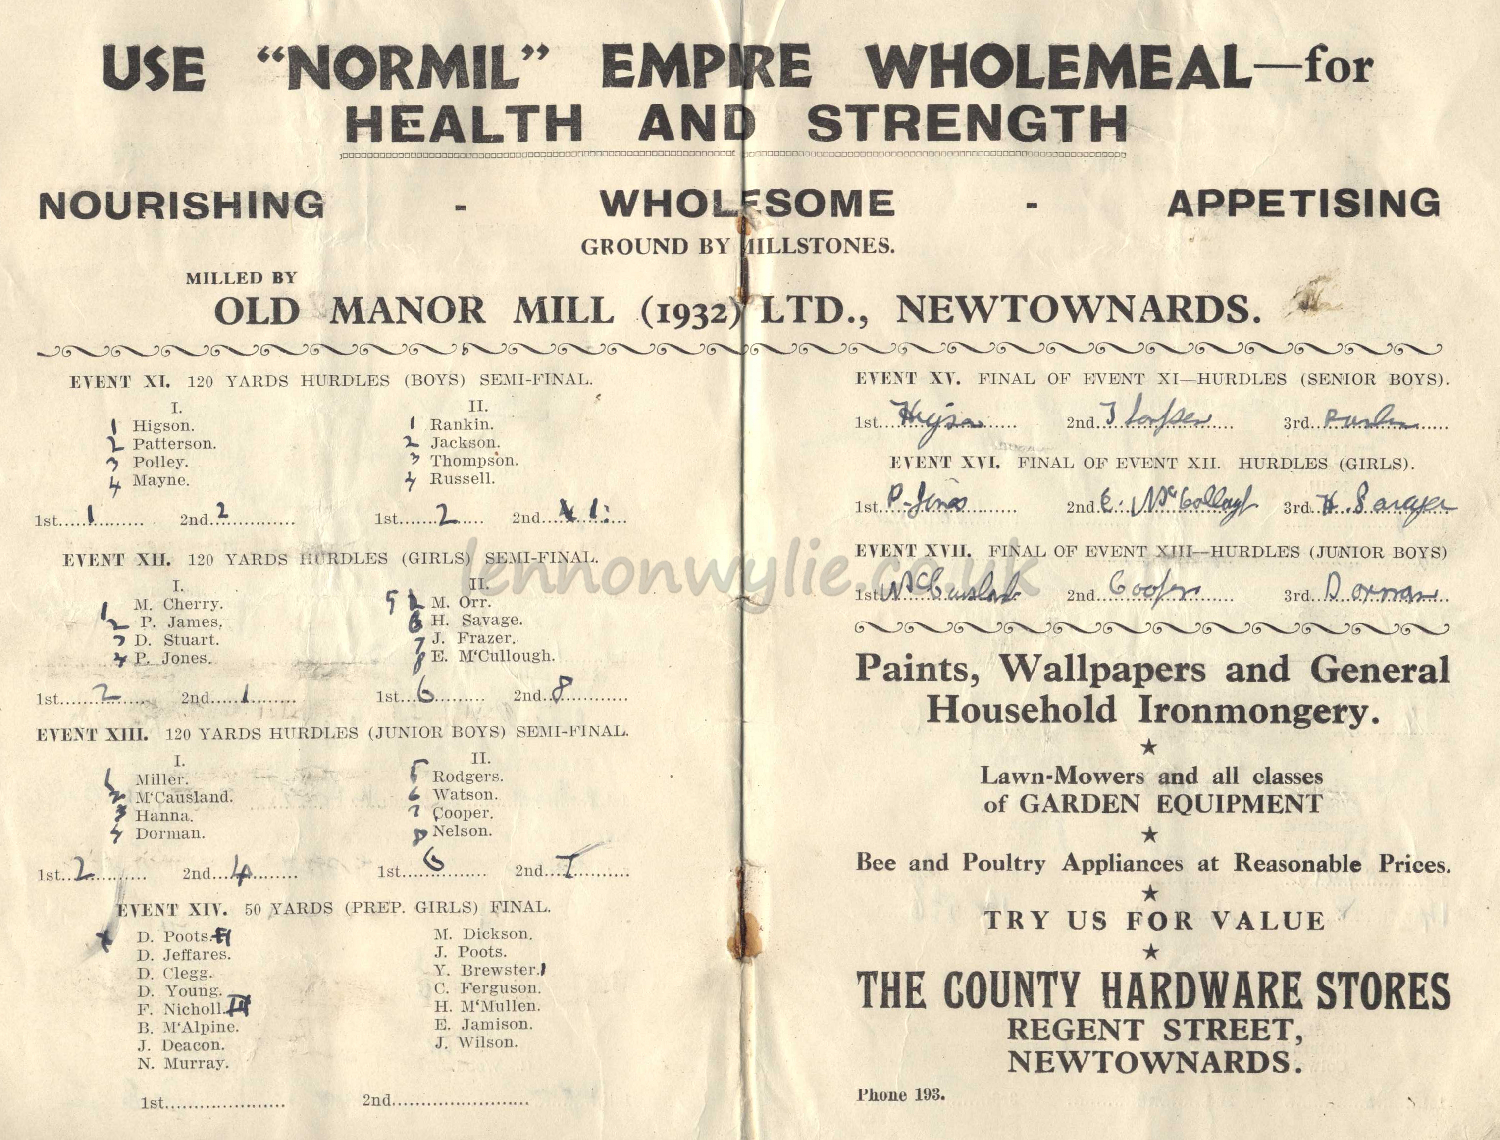 USE “NORMIL” EMPIRE WHOLEMEAL—for
HEALTH AND STRENGTH
NOURISHING - WHOLESOME - APPETISING
GROUND BY MILLSTONES.
MILLED BY
OLD MANOR MILL (1932) LTD., NEWTOWNARDS.
EVENT XI. 120 YARDS HURDLES (BOYS) SEMI-FINAL.
I.
1 Higson.
2 Patterson.
3 Polley.
4 Mayne.
II.
1 Rankin.
2 Jackson.
3 Thompson.
4 Russell.
1st.....1......... 2nd..2............
1st......2..... 2nd.......1:......
EVENT XII. 120 YARDS HURDLES (GIRLS) SEMI-FINAL.
I.
1 M. Cherry.
2 P. James.
3 D. Stuart.
4 P. Jones.
II.
5 M. Orr.
6 H. Savage.
7 J. Frazer.
8 E. M‘Cullough.
1st......2....... 2nd......1........
1st...6......... 2nd..8............
EVENT XIII. 120 YARDS HURDLES (JUNIOR BOYS) SEMI-FINAL.
I.
1 Miller.
2 M‘Causland.
3 Hanna.
4 Dorman.
II.
5 Rodgers.
6 Watson.
7 Cooper.
8 Nelson.
1st..2.......... 2nd...4.........
1st.....6......... 2nd...7..........
EVENT XIV. 50 YARDS (PREP. GIRLS) FINAL.
D. Poots. II
D. Jeffares.
D. Clegg.
D. Young.
F. Nicholl. III
B. M‘Alpine.
J. Deacon.
N. Murray.
M. Dickson.
J. Poots.
Y. Brewster. 1
C. Ferguson.
H. M‘Mullen.
E. Jamison.
J. Wilson.
1st..................... 2nd........................
EVENT XV. FINAL OF EVENT XI—HURDLES (SENIOR BOYS).
1st....Higson...... 2nd............ 3rd...Rankin......
EVENT XVI. FINAL OF EVENT XII. HURDLES (GIRLS).
1st P. Jones 2nd E. McCollough 3rd H. Savage
EVENT XVII. FINAL OF EVENT XIII—HURDLES (JUNIOR BOYS)
1st McCausland 2nd...Cooper...... 3rd...Dorman...
Paints, Wallpapers and General
Household Ironmongery.
Lawn-Mowers and all classes
of GARDEN EQUIPMENT
Bee and Poultry Appliances at Reasonable Prices.
TRY US FOR VALUE
THE COUNTY HARDWARE STORES
REGENT STREET,
NEWTOWNARDS.
Phone 193.
lennonwylie.co.uk